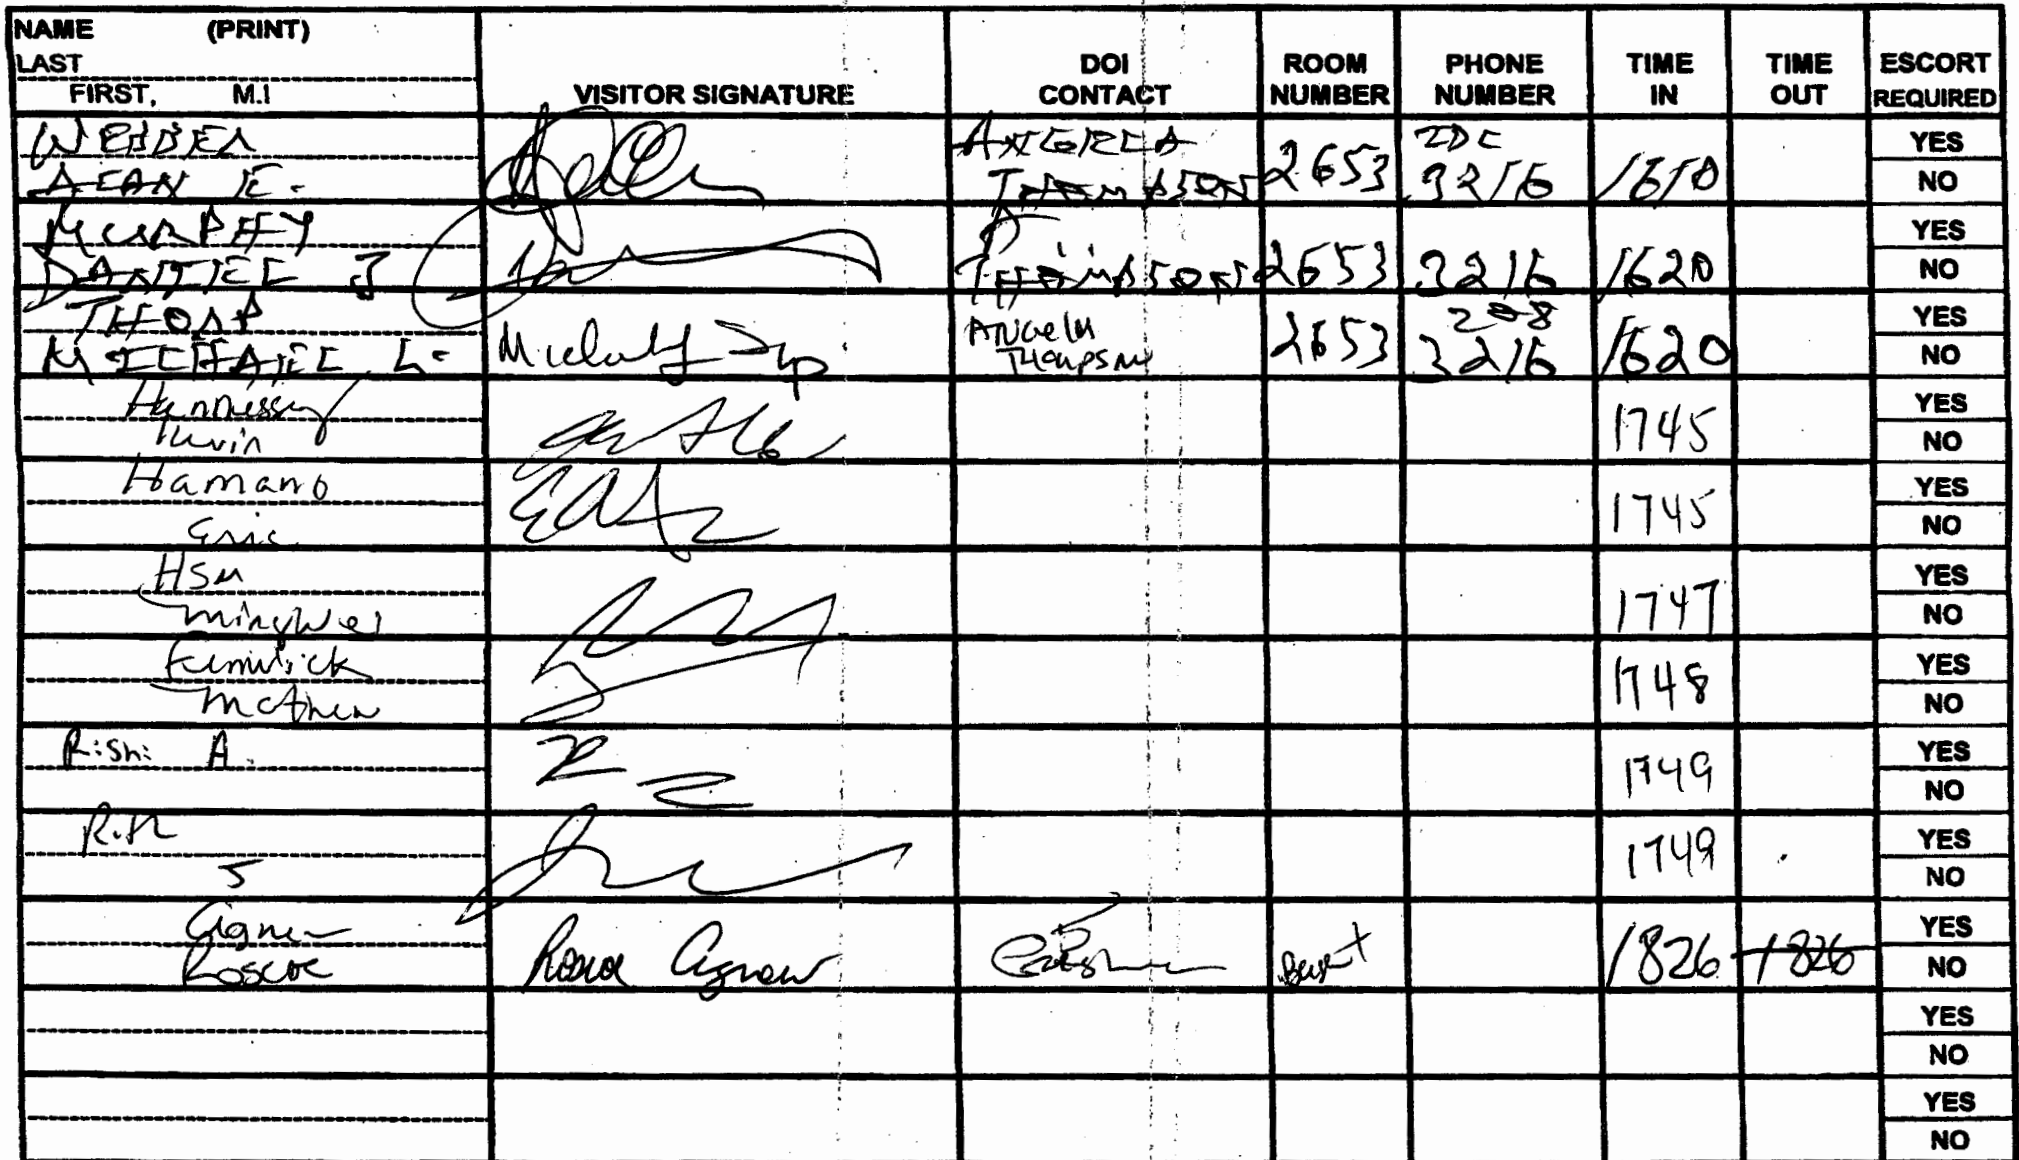 NAME (PRINT)
LAST
FIRST, M.I
VISITOR SIGNATURE
DOI CONTACT
ROOM NUMBER
PHONE NUMBER
TIME IN
TIME OUT
ESCORT REQUIRED
WEBBER
ALAN E. THOMPSON 2653 3216 1610
YES
NO
MURPHY
DANIEL J THOMPSON 2653 3216 1620
YES
NO
THORP 208
MICHAEL L. 2653 3216 1620
Thompson
YES
NO
Hennessey
Kevin 1745
YES
NO
Hamano
Eric 1745
YES
NO
Hsu
Mingwei 1747
YES
NO
Fenwick
Matthew 1748
YES
NO
Rishi A. 1749
YES
NO
1749
YES
NO
Agnew
Roscoe Roscoe Agnew 1826 1826
YES
NO
YES
NO
YES
NO